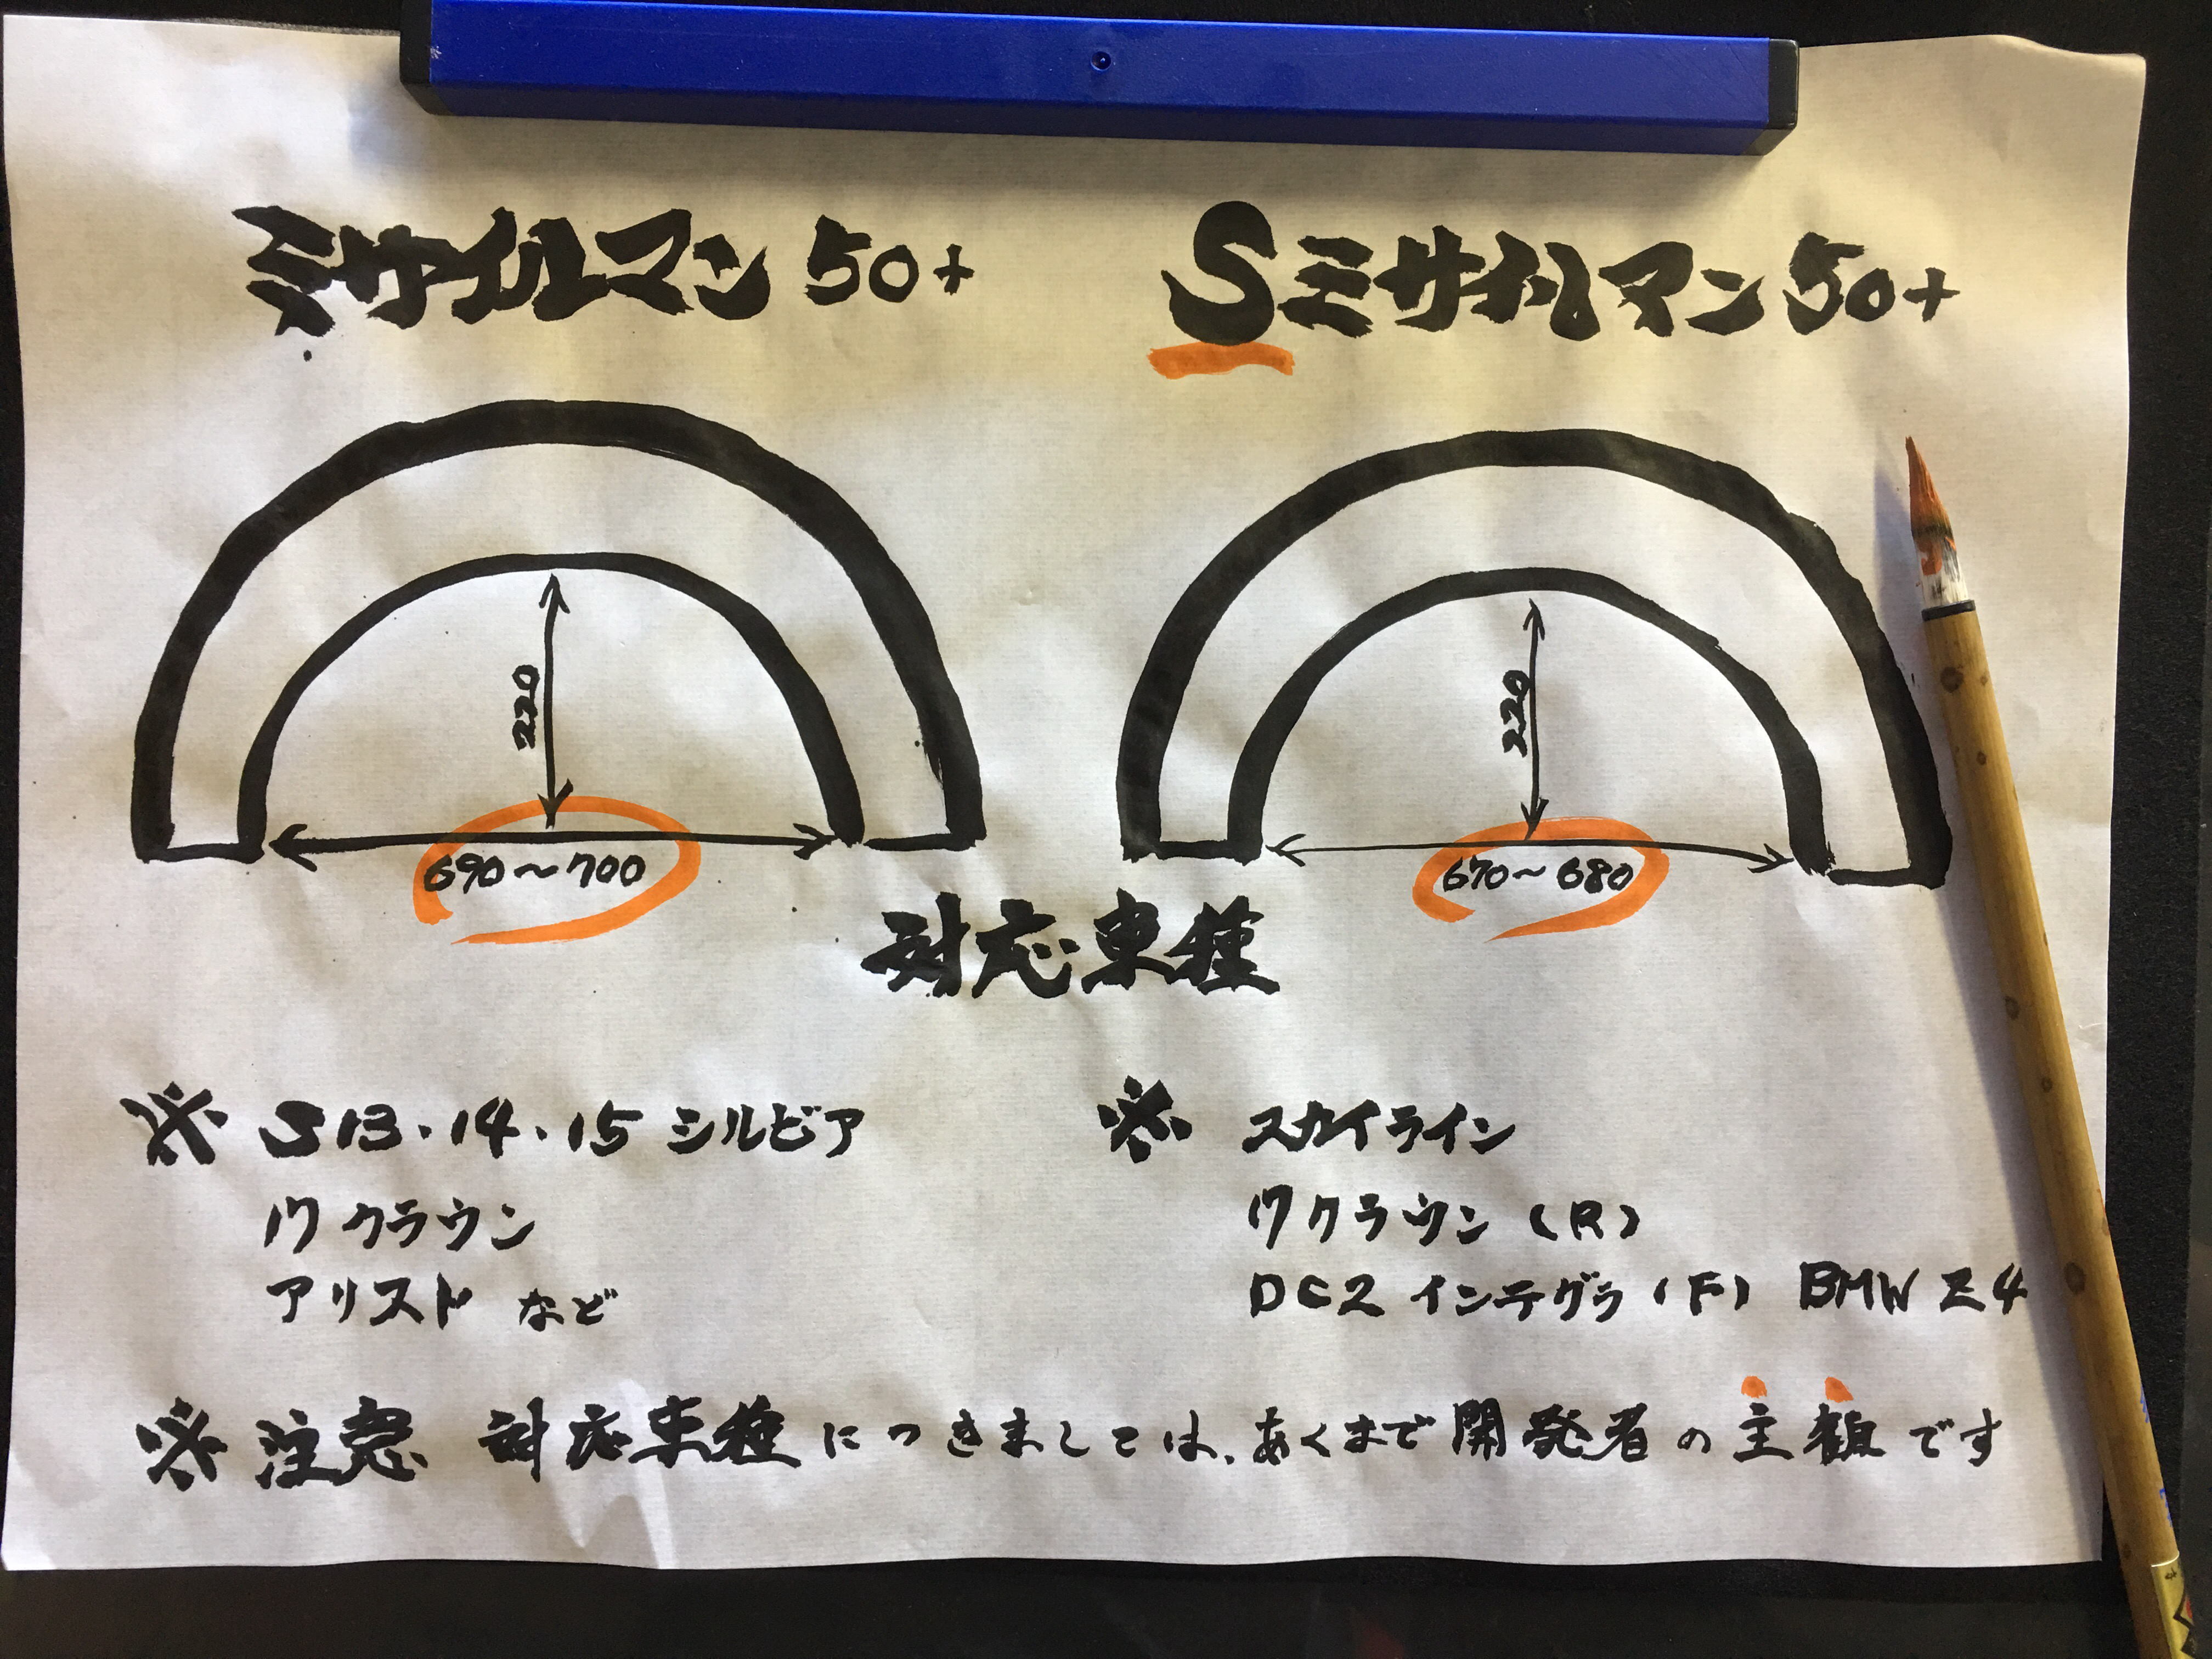 ミサイルマン50+
Sミサイルマン50+
220
690～700
220
670～680
対応車種
※ S13・14・15 シルビア
17 クラウン
アリスト など
※ スカイライン
17クラウン (R)
DC2 インテグラ (F) BMW Z4
※ 注意 対応車種につきましては、あくまで開発者の主観です